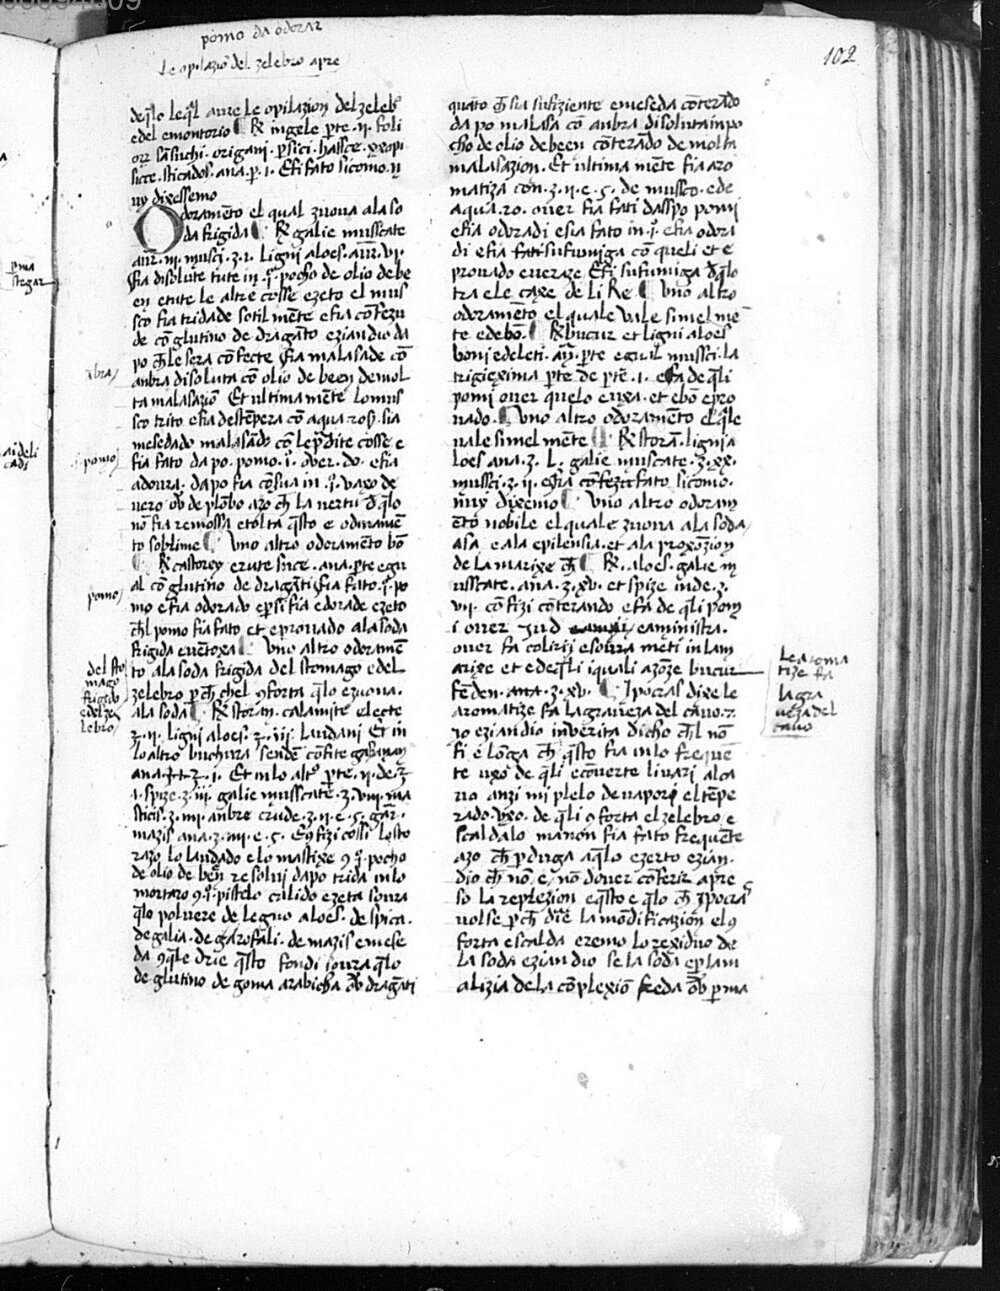 pomo da odorar
Le opilazio del zelebro apre
102
deq̄lo leq̄l aure le opilazion del zeleb°
edel emontorio ¶ ℞ ingele p̄te · ij · foli
oꝝ sāsuchi · origani · p̄sici ·
sicce · sticados · ana · p̄ · 1 · Efi fato sicomo · n
uy dixessemo
Odoramēto el qual zuova ala so
da frigida ¶ ℞ galie musscate
aur̄ · iij · musci · ʒ · 1 · ligni aloes · aur̄ · vj ·
fia disolute tute in · q̄ · pocho de olio de be
en e tute le altre cosse ezeto el mus
sco fia tridade sotil mēte e fia cōfezu
de cō glutino de dragāto eziandio da
po ch̄ le sera cōfecte fia malasade cō
anbra disoluta cō olio de been de mol
ta malasaziō Et ultima mēte lo mus
sco trito e fia destēpera cō aqua ros̄ · sia
mesedado malasādo cō le p̄dite cosse e
fia fato da po · pomo · j̄ · over · do · e fia
adoura · dapo fia cōsua in · j̄ · vaxo de
vero ov̄ de piōbo azo ch̄ la vertu d̄ q̄lo
nō fia remossa e tolta q̄sto e odoramē
to soblime ¶ Uno altro odoramēto bō
¶ ℞ castorey e rute sicce · ana · p̄te egu
al cō glutino de dragāti fia fato · j̄ · po
mo e fia odorado e p̄ si fia edorade ezeto
ch̄l pomo fia fato et e provado ala soda
frigida e vētoxa ¶ Uno altro odoramē
to ala soda frigida del stomago e del
zelebro p̄ ch̄ chel 9forta q̄lo e zuova ·
ala soda ¶ ℞ storan̄ · calamite electe
ʒ · ij · ligni aloes · ʒ · iij · laudani Et in
lo altro buchura sendē cōfite
ana · ʒ · 1 · Et in lo alt° p̄te · ij · de · ʒ
1 · spize · ʒ · iij · galie musscate · ʒ · viij · ma
sticis · ʒ · iiij · anbre crude · ʒ · ij · e · s · gar̄ ·
mazis ana · ʒ · iiij · e · s · E 9fizi cossi lo sto
raxo lo laudado e lo mastixe 9 j̄ · pocho
de olio de ben̄ resolvi dapo trida in lo
mortaro 9 j̄ · pistelo calido ezeta soura
q̄lo polvere de legno aloes · de spica ·
de galia · de garofali · de mazis e mese
da 9q̄le drie q̄sto fondi soura q̄lo
de glutino de goma arabicha ov̄ dragāti
quāto ch̄ sia sufiziente e meseda cōterādo
da po malasa cō anbra disoluta in po
cho de olio de been cōterādo de molta
malasazion · Et ultima mēte fia aro
matiza con · ʒ · ij · e · s · de mussco · e de
aqua · ro · over fia fati dasspo pomi
e fia odoradi e sia fato in · j̄ · e fia odora
di e fia fati sufumiga cō queli et e
provado e veraxe E fi sufumiga d̄ q̄lo
tra e le caxe de li Re ¶ Uno altro
odoramēto el quale vale simel mē
te ed ebō · ¶ ℞ bucur et ligni aloes
boni edeleti · an̄ · p̄te egval mussci · la
trigiexima p̄te de p̄te · 1 · e fa de q̄li
pomi over quelo e uxa · et e bō e pro
vado · ¶ Uno altro odoramēto el q̄le
vale simel mēte ¶ ℞ storā · ligni a
loes ana · ʒ · L · galie muscate · ʒ · xx ·
mussci · ʒ · ij · e fia cōfezi e fato sicomo ·
nuy dixemo ¶ Uno altro odoram
ēto nobile el quale zuova ala soda
asa e ala epilensia · et ala
de la marixe ch̄ ¶ ℞ · aloes · galie m
usscate · ana · ʒ · xv · et spize inde · ʒ ·
vij · cōfizi cōterando e fa de q̄li pom
i over e aministra ·
over fa colirij e soura meti in la m
arixe et e de q̄li iquali azōze bucur
fēden · ana · ʒ · xv · ¶ Ipocras dixe le
aromatize fa la gravieza del cavo · ʒ ·
zo eziandio in verita dicho ch̄l nō
fi e lōcga ch̄ q̄sto fia in lo frequē
te uxo de q̄li e cōverte li vari al ca
vo anzi in piēlo de vapori el tēpe
rado · uxo · de q̄li 9forta el zelebro e
scaldālo ma nōn fia fato frequēte
azo ch̄ p̄duga a q̄lo ezerto ezian ·
dio ch̄ nō e nō dover cōferir apre
so la replezion e q̄sto e q̄lo ch̄ ypocras
volse p̄ ch̄ die la mōdificaziōn el 9
forta e scalda e remo lo rexiduo de
la soda eziandio se la soda e p̄ la m
alizia de la cōplexiō freda ov̄ p̄ ma
p̄ma
stegar
ābra
pomo
ai deli
cadi
pomo
del sto
mago
frigido
e del ze
lebro
Le aroma
tize fa
la gra
vieza del
cavo